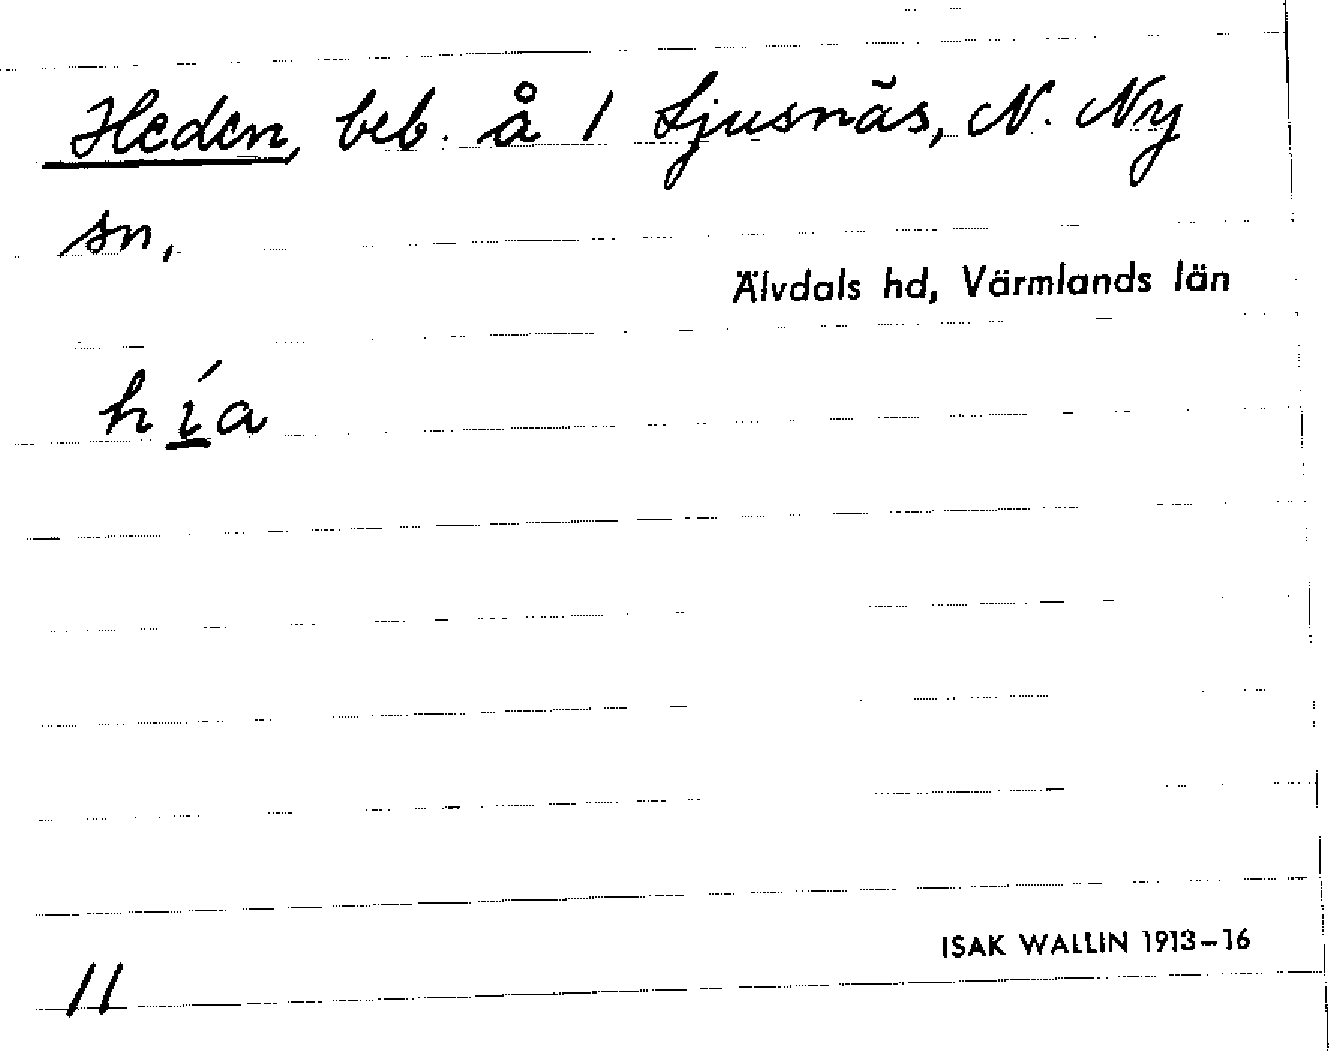 Heden, beb. å 1 Ljusnäs, N. Ny
sn,
Älvdals hd, Värmlands län
hía
ISAK WALLIN 1913–16
11